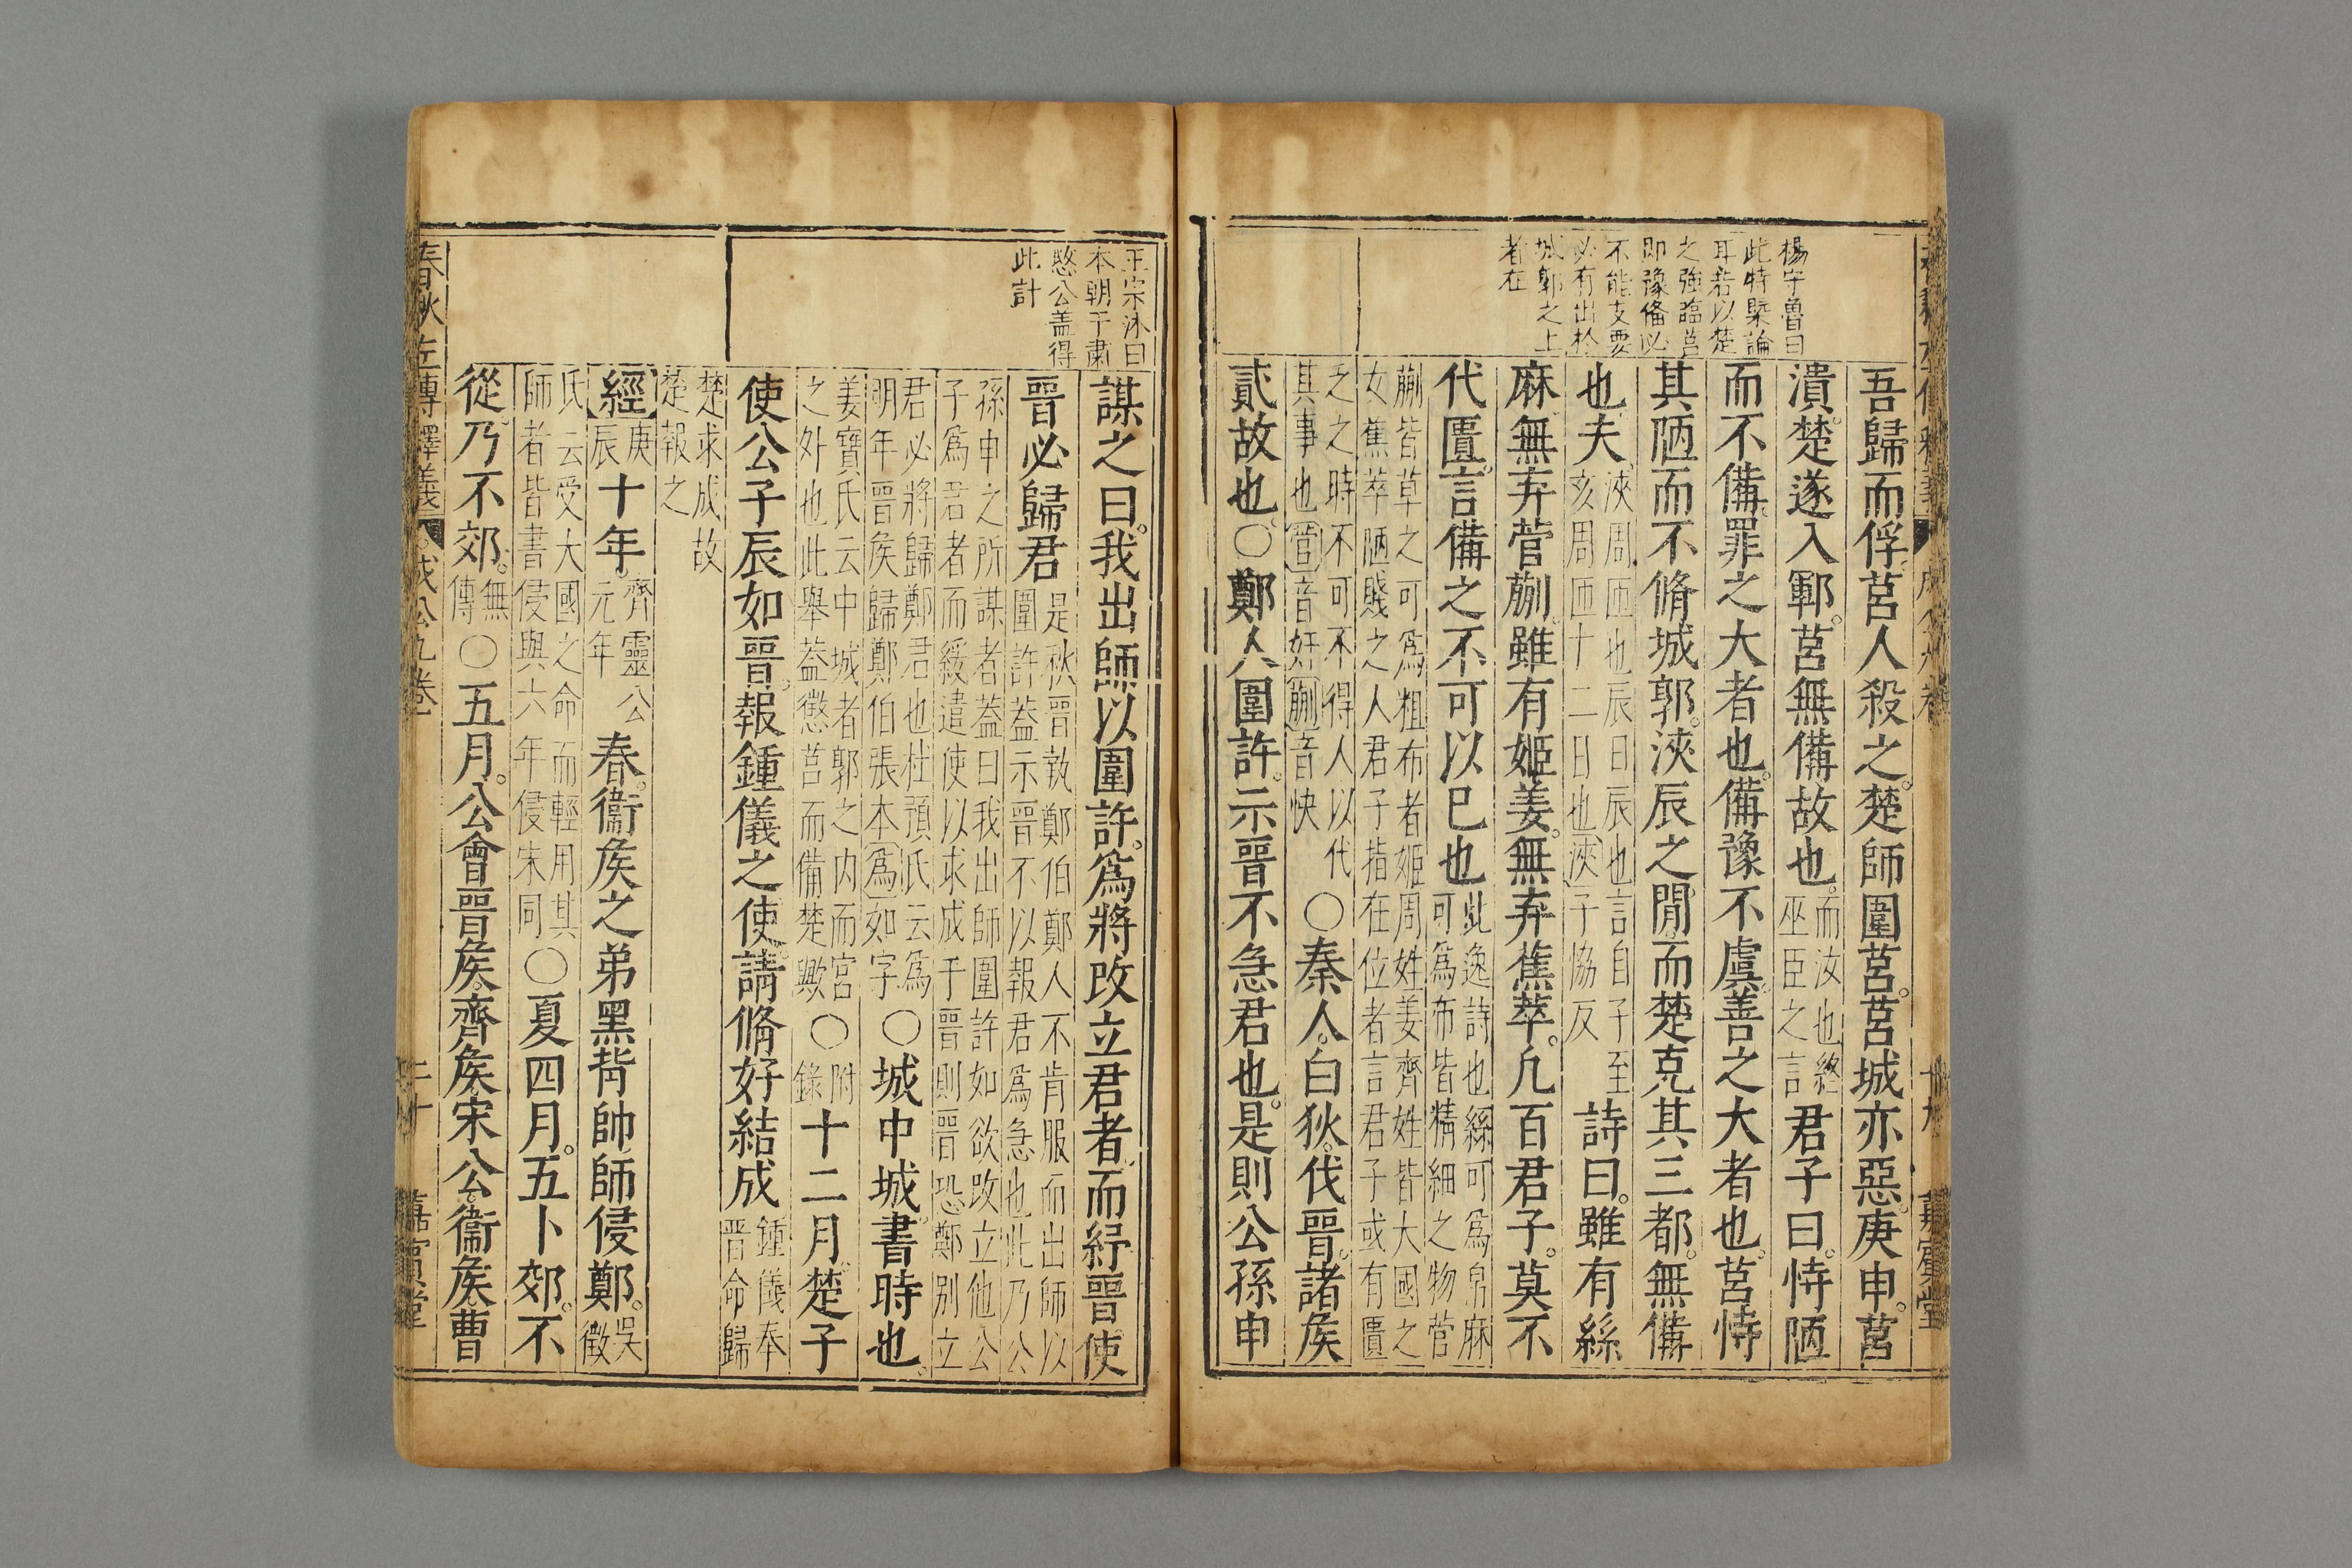 楊守魯曰
此特槩論
耳若以楚
之強臨莒
即豫備必
不能支要
必有出於
城郭之上
者在
吾歸而俘。莒人殺之。楚師圍莒。莒城亦惡。庚申。莒
潰。楚遂入鄆。莒無備故也。而汝也終巫臣之言君子曰。恃陋
而不備。罪之大者也。備豫不虞。善之大者也。莒恃
其陋。而不脩城郭。浹辰之閒。而楚克其三都。無備
也夫。浹周匝也辰日辰也言自子至亥周匝十二日也浹子協反詩曰。雖有絲
麻。無弃菅蒯。雖有姬姜。無弃蕉萃。凡百君子。莫不
代匱。言備之不可以已也此逸詩也絲可為帛麻可為布皆精細之物菅
蒯皆草之可為粗布者姬周姓姜齊姓皆大國之
女蕉萃陋賤之人君子指在位者言君子或有匱
乏之時不可不得人以代其事也菅音奸蒯音快○秦人。白狄。伐晉。諸矦
貳故也。○鄭人圍許。示晉不急君也。是則公孫申
春秋左傳釋義 成公九卷 十九 嘉賓堂
王宗沐曰
本朝于肅
愍公盖得
此計
謀之曰。我出師以圍許。為將改立君者。而紓晉使。
晉必歸君是秋晉執鄭伯鄭人不肯服而出師以圍許葢示晉不以報君為急也此乃公
孫申之所謀者葢曰我出師圍許如欲改立他公
子為君者而緩遣使以求成于晉則晉恐鄭別立
君必將歸鄭君也杜預氏云為明年晉矦歸鄭伯張本為如字○城中城。書時也。
姜寶氏云中城者郭之內而宮之外也此舉葢懲莒而備楚歟○附錄十二月。楚子
使公子辰如晉。報鍾儀之使。請脩好結成鍾儀奉晉命歸
楚求成故楚報之
經庚辰十年。齊靈公元年春。衞矦之弟黑背帥師侵鄭。吳徵
氏云受大國之命而輕用其師者皆書侵與六年侵宋同○夏四月。五卜郊。不
從。乃不郊。無傳○五月。公會晉矦。齊矦。宋公。衞矦。曹
春秋左傳釋義 成公九卷 二十 嘉賓堂